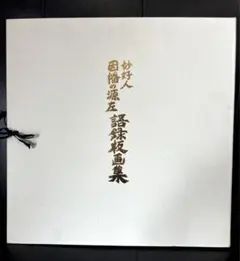 妙好人
因幡の源左
語録板画集